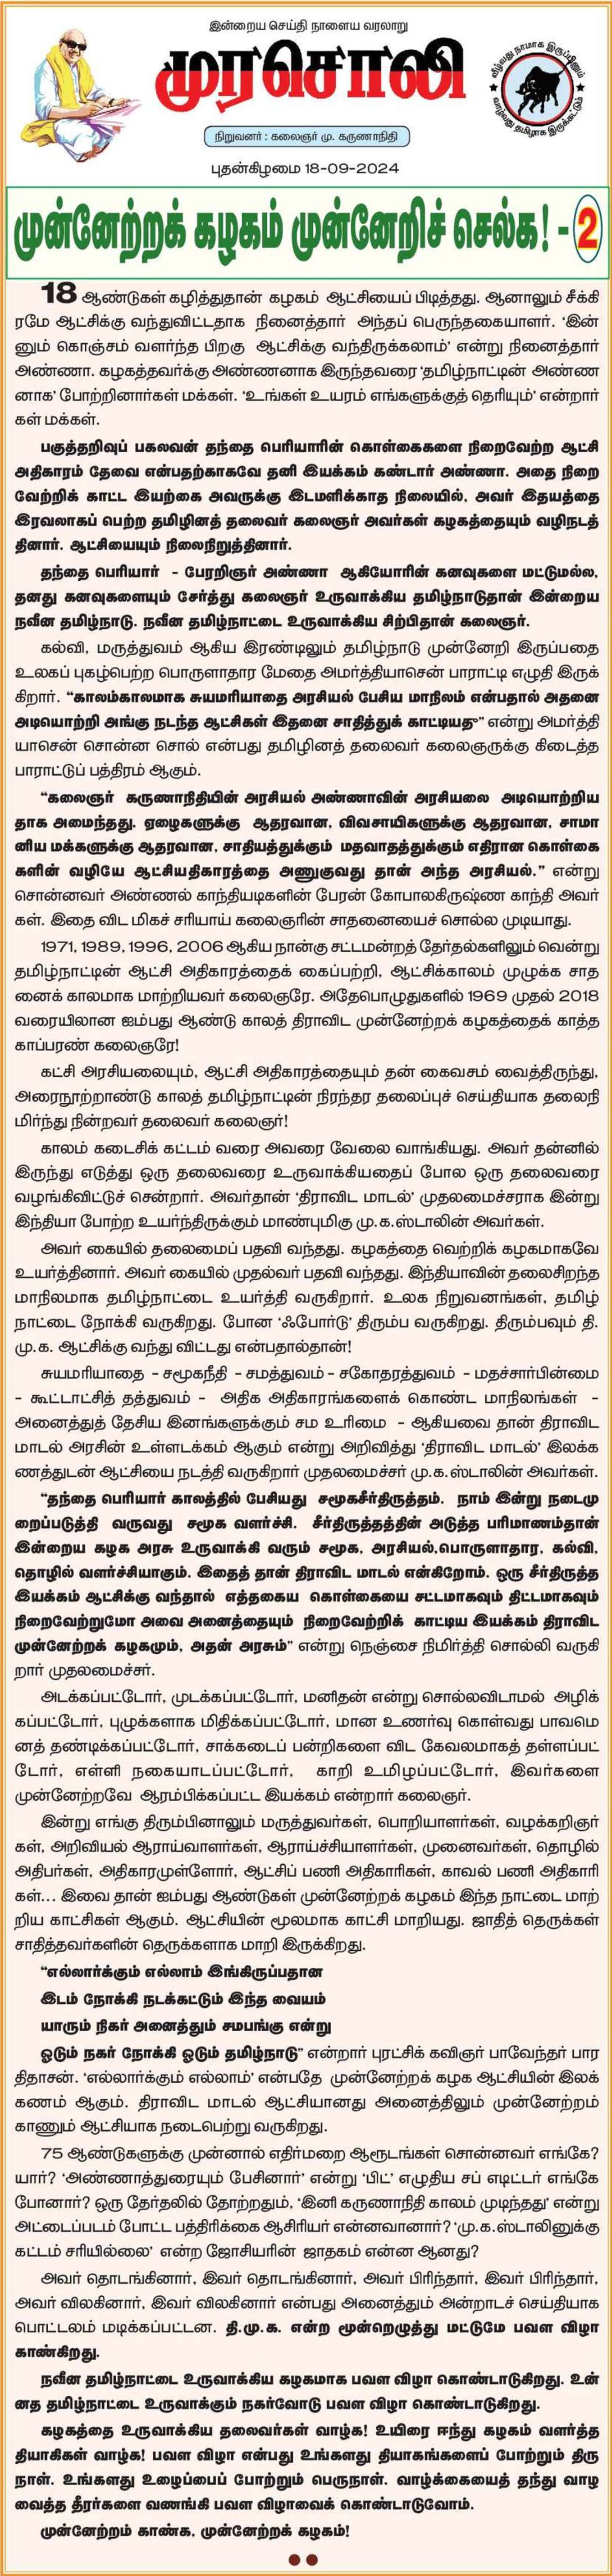 இன்றைய செய்தி நாளைய வரலாறு
முரசொலி
வீழ்வது நாமாக இருப்பினும்
வாழ்வது தமிழாக இருக்கட்டும்
நிறுவனர் : கலைஞர் மு. கருணாநிதி
புதன்கிழமை 18-09-2024
முன்னேற்றக் கழகம் முன்னேறிச் செல்க! - 2
18 ஆண்டுகள் கழித்துதான் கழகம் ஆட்சியைப் பிடித்தது. ஆனாலும் சீக்கி
ரமே ஆட்சிக்கு வந்துவிட்டதாக நினைத்தார் அந்தப் பெருந்தகையாளர். ‘இன்
னும் கொஞ்சம் வளர்ந்த பிறகு ஆட்சிக்கு வந்திருக்கலாம்’ என்று நினைத்தார்
அண்ணா. கழகத்தவர்க்கு அண்ணனாக இருந்தவரை ‘தமிழ்நாட்டின் அண்ண
னாக’ போற்றினார்கள் மக்கள். ‘உங்கள் உயரம் எங்களுக்குத் தெரியும்’ என்றார்
கள் மக்கள்.
பகுத்தறிவுப் பகலவன் தந்தை பெரியாரின் கொள்கைகளை நிறைவேற்ற ஆட்சி
அதிகாரம் தேவை என்பதற்காகவே தனி இயக்கம் கண்டார் அண்ணா. அதை நிறை
வேற்றிக் காட்ட இயற்கை அவருக்கு இடமளிக்காத நிலையில், அவர் இதயத்தை
இரவலாகப் பெற்ற தமிழினத் தலைவர் கலைஞர் அவர்கள் கழகத்தையும் வழிநடத்
தினார். ஆட்சியையும் நிலைநிறுத்தினார்.
தந்தை பெரியார் - பேரறிஞர் அண்ணா ஆகியோரின் கனவுகளை மட்டுமல்ல,
தனது கனவுகளையும் சேர்த்து கலைஞர் உருவாக்கிய தமிழ்நாடுதான் இன்றைய
நவீன தமிழ்நாடு. நவீன தமிழ்நாட்டை உருவாக்கிய சிற்பிதான் கலைஞர்.
கல்வி, மருத்துவம் ஆகிய இரண்டிலும் தமிழ்நாடு முன்னேறி இருப்பதை
உலகப் புகழ்பெற்ற பொருளாதார மேதை அமர்த்தியாசென் பாராட்டி எழுதி இருக்
கிறார். “காலம்காலமாக சுயமரியாதை அரசியல் பேசிய மாநிலம் என்பதால் அதனை
அடியொற்றி அங்கு நடந்த ஆட்சிகள் இதனை சாதித்துக் காட்டியது” என்று அமர்த்தி
யாசென் சொன்ன சொல் என்பது தமிழினத் தலைவர் கலைஞருக்கு கிடைத்த
பாராட்டுப் பத்திரம் ஆகும்.
“கலைஞர் கருணாநிதியின் அரசியல் அண்ணாவின் அரசியலை அடியொற்றிய
தாக அமைந்தது. ஏழைகளுக்கு ஆதரவான, விவசாயிகளுக்கு ஆதரவான, சாமா
னிய மக்களுக்கு ஆதரவான, சாதியத்துக்கும் மதவாதத்துக்கும் எதிரான கொள்கை
களின் வழியே ஆட்சியதிகாரத்தை அணுகுவது தான் அந்த அரசியல்.” என்று
சொன்னவர் அண்ணல் காந்தியடிகளின் பேரன் கோபாலகிருஷ்ண காந்தி அவர்
கள். இதை விட மிகச் சரியாய் கலைஞரின் சாதனையைச் சொல்ல முடியாது.
1971, 1989, 1996, 2006 ஆகிய நான்கு சட்டமன்றத் தேர்தல்களிலும் வென்று
தமிழ்நாட்டின் ஆட்சி அதிகாரத்தைக் கைப்பற்றி, ஆட்சிக்காலம் முழுக்க சாத
னைக் காலமாக மாற்றியவர் கலைஞரே. அதேபொழுதுகளில் 1969 முதல் 2018
வரையிலான ஐம்பது ஆண்டு காலத் திராவிட முன்னேற்றக் கழகத்தைக் காத்த
காப்பரண் கலைஞரே!
கட்சி அரசியலையும், ஆட்சி அதிகாரத்தையும் தன் கைவசம் வைத்திருந்து,
அரைநூற்றாண்டு காலத் தமிழ்நாட்டின் நிரந்தர தலைப்புச் செய்தியாக தலைநி
மிர்ந்து நின்றவர் தலைவர் கலைஞர்!
காலம் கடைசிக் கட்டம் வரை அவரை வேலை வாங்கியது. அவர் தன்னில்
இருந்து எடுத்து ஒரு தலைவரை உருவாக்கியதைப் போல ஒரு தலைவரை
வழங்கிவிட்டுச் சென்றார். அவர்தான் ‘திராவிட மாடல்’ முதலமைச்சராக இன்று
இந்தியா போற்ற உயர்ந்திருக்கும் மாண்புமிகு மு.க.ஸ்டாலின் அவர்கள்.
அவர் கையில் தலைமைப் பதவி வந்தது. கழகத்தை வெற்றிக் கழகமாகவே
உயர்த்தினார். அவர் கையில் முதல்வர் பதவி வந்தது. இந்தியாவின் தலைசிறந்த
மாநிலமாக தமிழ்நாட்டை உயர்த்தி வருகிறார். உலக நிறுவனங்கள், தமிழ்
நாட்டை நோக்கி வருகிறது. போன ‘ஃபோர்டு’ திரும்ப வருகிறது. திரும்பவும் தி.
மு.க. ஆட்சிக்கு வந்து விட்டது என்பதால்தான்!
சுயமரியாதை - சமூகநீதி - சமத்துவம் - சகோதரத்துவம் - மதச்சார்பின்மை
- கூட்டாட்சித் தத்துவம் - அதிக அதிகாரங்களைக் கொண்ட மாநிலங்கள் -
அனைத்துத் தேசிய இனங்களுக்கும் சம உரிமை - ஆகியவை தான் திராவிட
மாடல் அரசின் உள்ளடக்கம் ஆகும் என்று அறிவித்து ‘திராவிட மாடல்’ இலக்க
ணத்துடன் ஆட்சியை நடத்தி வருகிறார் முதலமைச்சர் மு.க.ஸ்டாலின் அவர்கள்.
“தந்தை பெரியார் காலத்தில் பேசியது சமூகசீர்திருத்தம். நாம் இன்று நடைமு
றைப்படுத்தி வருவது சமூக வளர்ச்சி. சீர்திருத்தத்தின் அடுத்த பரிமாணம்தான்
இன்றைய கழக அரசு உருவாக்கி வரும் சமூக, அரசியல்,பொருளாதார, கல்வி,
தொழில் வளர்ச்சியாகும். இதைத் தான் திராவிட மாடல் என்கிறோம். ஒரு சீர்திருத்த
இயக்கம் ஆட்சிக்கு வந்தால் எத்தகைய கொள்கையை சட்டமாகவும் திட்டமாகவும்
நிறைவேற்றுமோ அவை அனைத்தையும் நிறைவேற்றிக் காட்டிய இயக்கம் திராவிட
முன்னேற்றக் கழகமும், அதன் அரசும்” என்று நெஞ்சை நிமிர்த்தி சொல்லி வருகி
றார் முதலமைச்சர்.
அடக்கப்பட்டோர், முடக்கப்பட்டோர், மனிதன் என்று சொல்லவிடாமல் அழிக்
கப்பட்டோர், புழுக்களாக மிதிக்கப்பட்டோர், மான உணர்வு கொள்வது பாவமெ
னத் தண்டிக்கப்பட்டோர், சாக்கடைப் பன்றிகளை விட கேவலமாகத் தள்ளப்பட்
டோர், எள்ளி நகையாடப்பட்டோர், காறி உமிழப்பட்டோர், இவர்களை
முன்னேற்றவே ஆரம்பிக்கப்பட்ட இயக்கம் என்றார் கலைஞர்.
இன்று எங்கு திரும்பினாலும் மருத்துவர்கள், பொறியாளர்கள், வழக்கறிஞர்
கள், அறிவியல் ஆராய்வாளர்கள், ஆராய்ச்சியாளர்கள், முனைவர்கள், தொழில்
அதிபர்கள், அதிகாரமுள்ளோர், ஆட்சிப் பணி அதிகாரிகள், காவல் பணி அதிகாரி
கள்... இவை தான் ஐம்பது ஆண்டுகள் முன்னேற்றக் கழகம் இந்த நாட்டை மாற்
றிய காட்சிகள் ஆகும். ஆட்சியின் மூலமாக காட்சி மாறியது. ஜாதித் தெருக்கள்
சாதித்தவர்களின் தெருக்களாக மாறி இருக்கிறது.
“எல்லார்க்கும் எல்லாம் இங்கிருப்பதான
இடம் நோக்கி நடக்கட்டும் இந்த வையம்
யாரும் நிகர் அனைத்தும் சமபங்கு என்று
ஓடும் நகர் நோக்கி ஓடும் தமிழ்நாடு” என்றார் புரட்சிக் கவிஞர் பாவேந்தர் பார
திதாசன். ‘எல்லார்க்கும் எல்லாம்’ என்பதே முன்னேற்றக் கழக ஆட்சியின் இலக்
கணம் ஆகும். திராவிட மாடல் ஆட்சியானது அனைத்திலும் முன்னேற்றம்
காணும் ஆட்சியாக நடைபெற்று வருகிறது.
75 ஆண்டுகளுக்கு முன்னால் எதிர்மறை ஆரூடங்கள் சொன்னவர் எங்கே?
யார்? ‘அண்ணாத்துரையும் பேசினார்’ என்று ‘பிட்’ எழுதிய சப் எடிட்டர் எங்கே
போனார்? ஒரு தேர்தலில் தோற்றதும், ‘இனி கருணாநிதி காலம் முடிந்தது’ என்று
அட்டைப்படம் போட்ட பத்திரிக்கை ஆசிரியர் என்னவானார்? ‘மு.க.ஸ்டாலினுக்கு
கட்டம் சரியில்லை’ என்ற ஜோசியரின் ஜாதகம் என்ன ஆனது?
அவர் தொடங்கினார், இவர் தொடங்கினார், அவர் பிரிந்தார், இவர் பிரிந்தார்,
அவர் விலகினார், இவர் விலகினார் என்பது அனைத்தும் அன்றாடச் செய்தியாக
பொட்டலம் மடிக்கப்பட்டன. தி.மு.க. என்ற மூன்றெழுத்து மட்டுமே பவள விழா
காண்கிறது.
நவீன தமிழ்நாட்டை உருவாக்கிய கழகமாக பவள விழா கொண்டாடுகிறது. உன்
னத தமிழ்நாட்டை உருவாக்கும் நகர்வோடு பவள விழா கொண்டாடுகிறது.
கழகத்தை உருவாக்கிய தலைவர்கள் வாழ்க! உயிரை ஈந்து கழகம் வளர்த்த
தியாகிகள் வாழ்க! பவள விழா என்பது உங்களது தியாகங்களைப் போற்றும் திரு
நாள். உங்களது உழைப்பைப் போற்றும் பெருநாள். வாழ்க்கையைத் தந்து வாழ
வைத்த தீரர்களை வணங்கி பவள விழாவைக் கொண்டாடுவோம்.
முன்னேற்றம் காண்க, முன்னேற்றக் கழகம்!